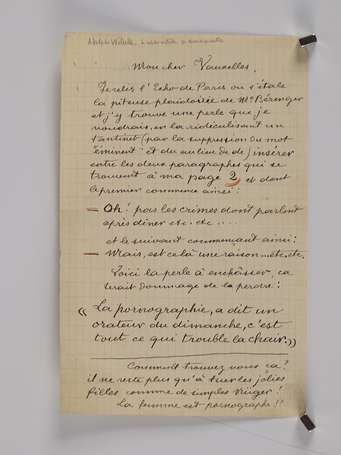 Mon cher Vauxelles,
Je relis l'Echo de Paris où s'étale
la piteuse plaidoirie de Mr Bérenger
et j'y trouve une perle que je
voudrais, en la ridiculisant un
tantinet (par la suppression du mot
"éminent" et du au lieu de de) insérer
entre les deux paragraphes qui se
trouvent à ma page 2, et dont
le premier commence ainsi:
— Oh! pas les crimes dont parlent
après dîner etc. etc ....
et le suivant commençant ainsi:
— Mais, est cela une raison... etc. etc.
Voici la perle à enchâsser, ça
serait dommage de la perdre:
« La pornographie, a dit un
orateur du dimanche, c'est
tout ce qui trouble la chair. »
Comment trouvez vous ça?
il ne reste plus qu'à tuer les jolies
filles comme de simples
La femme est pornographe!!